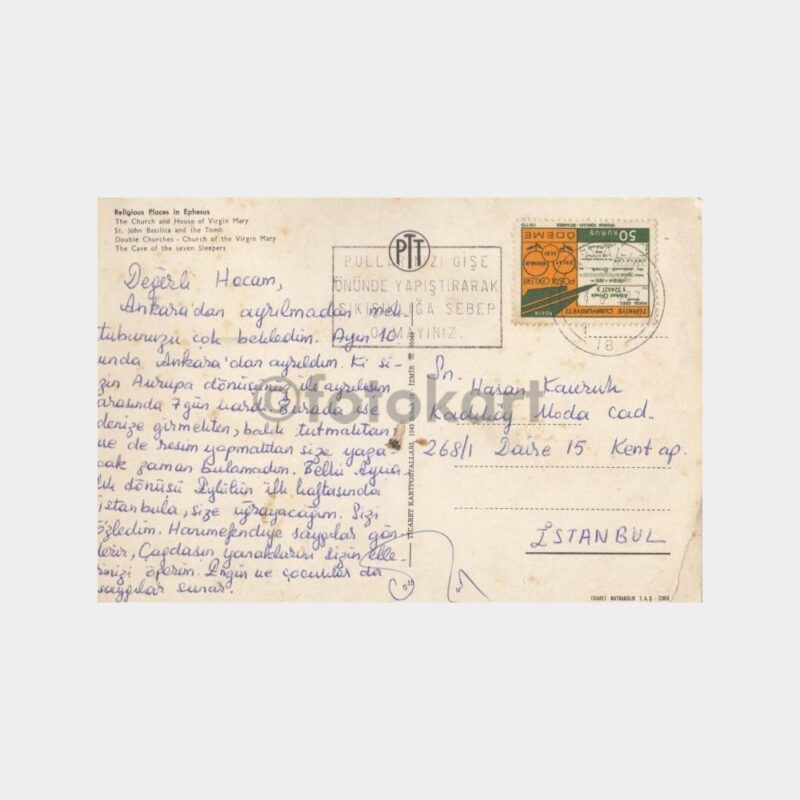 Religious Places in Ephesus
The Church and House of Virgin Mary
St. John Basilica and the Tomb
Double Churches - Church of the Virgin Mary
The Cave of the seven Sleepers
PTT
PULLARINIZI GİŞE
ÖNÜNDE YAPIŞTIRARAK
SIKIŞIKLIĞA SEBEP
OLMAYINIZ.
50 KURUŞ
ÖDEME
1975
POSTA ÇEKLERİ
TÜRKİYE CUMHURİYETİ
POSTA
18
Değerli Hocam,
Ankara'dan ayrılmadan mek
tubunuzu çok bekledim. Ayın 10
unda Ankara'dan ayrıldım. Ki si-
zin Avrupa dönüşünüz ile ayrılışım
arasında 7 gün vardı. Burada ise
denize girmekten, balık tutmaktan
ne de resim yapmaktan size yaza
cak zaman bulamadım. Belki
lık dönüşü Eylülün ilk haftasında
İstanbula, size uğrayacağım. Sizi
özledim. Hanımefendiye saygılar gön
derir, Çağdaşın yanaklarını sizin elle
rinizi öperim. Engin ve çocuklar da
saygılar sunar.
Sn. Hasan Kavruk
Kadıköy Moda cad.
268/1 Daire 15 Kent ap.
İSTANBUL
TİCARET KARTPOSTALLARI İZMİR
TİCARET MATBAACILIK T.A.Ş. - İZMİR
©fotokart